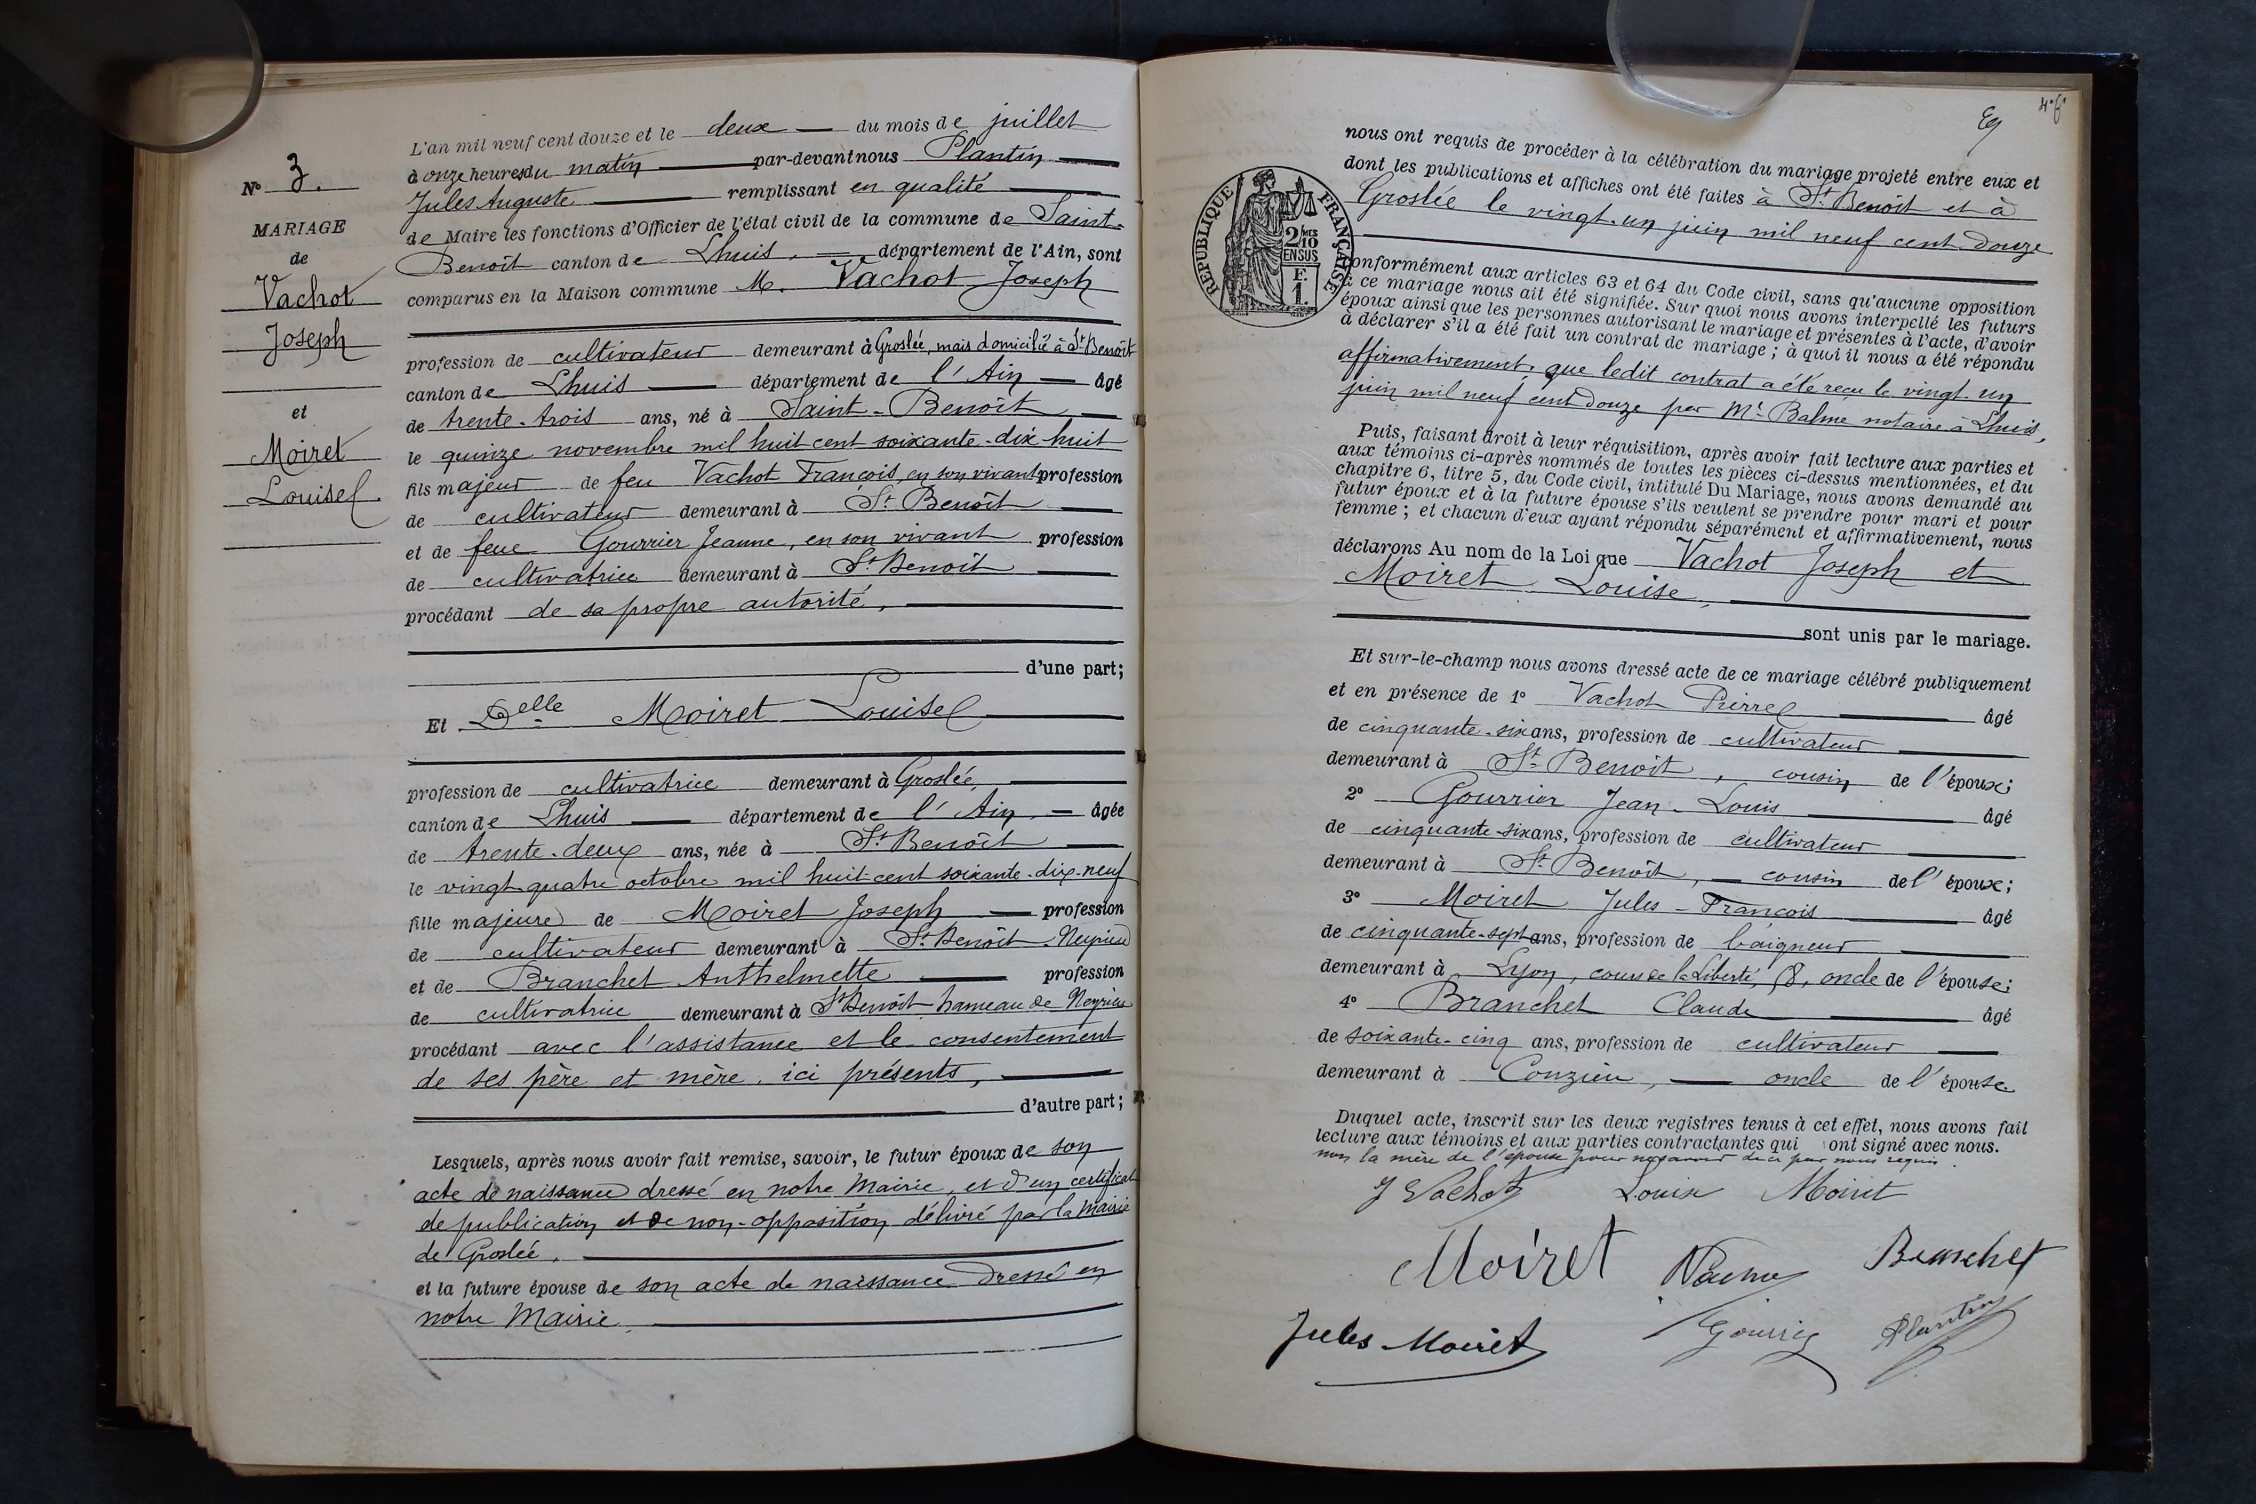 N° 3.
MARIAGE
de
Vachot
Joseph
et
Moiret
Louise
L'an mil neuf cent douze et le deux du mois de juillet
à onze heures du matin par-devant nous Plantin
Jules Auguste remplissant en qualité
de Maire les fonctions d'Officier de l'état civil de la commune de Saint-
Benoît canton de Lhuis, département de l'Ain, sont
comparus en la Maison commune M. Vachot Joseph
profession de cultivateur demeurant à Groslée, mais domicilié à St Benoît
canton de Lhuis département de l'Ain âgé
de trente-trois ans, né à Saint-Benoît
le quinze novembre mil huit cent soixante-dix-huit
fils majeur de feu Vachot François, en son vivant profession
de cultivateur demeurant à St Benoît
et de feue Gourrier Jeanne, en son vivant profession
de cultivatrice demeurant à St Benoît
procédant de sa propre autorité,
d'une part;
Et Delle Moiret Louise
profession de cultivatrice demeurant à Groslée,
canton de Lhuis département de l'Ain, âgée
de trente-deux ans, née à St Benoît
le vingt-quatre octobre mil huit cent soixante-dix-neuf
fille majeure de Moiret Joseph profession
de cultivateur demeurant à St Benoît-Neyrieu
et de Branchet Anthelmette profession
de cultivatrice demeurant à St Benoît hameau de Neyrieu
procédant avec l'assistance et le consentement
de ses père et mère, ici présents,
d'autre part;
Lesquels, après nous avoir fait remise, savoir, le futur époux de son
acte de naissance dressé en notre Mairie, et d'un certificat
de publication et de non-opposition délivré par la Mairie
de Groslée,
et la future épouse de son acte de naissance dressé en
notre Mairie
nous ont requis de procéder à la célébration du mariage projeté entre eux et
dont les publications et affiches ont été faites à St Benoît et à
Groslée le vingt-un juin mil neuf cent douze
REPUBLIQUE FRANÇAISE
2/10 MES
EN SUS
F.
1.
conformément aux articles 63 et 64 du Code civil, sans qu'aucune opposition
à ce mariage nous ait été signifiée. Sur quoi nous avons interpellé les futurs
époux ainsi que les personnes autorisant le mariage et présentes à l'acte, d'avoir
à déclarer s'il a été fait un contrat de mariage; à quoi il nous a été répondu
affirmativement, que ledit contrat a été reçu le vingt-un
juin mil neuf cent douze par Me Balme notaire à Lhuis,
Puis, faisant droit à leur réquisition, après avoir fait lecture aux parties et
aux témoins ci-après nommés de toutes les pièces ci-dessus mentionnées, et du
chapitre 6, titre 5, du Code civil, intitulé Du Mariage, nous avons demandé au
futur époux et à la future épouse s'ils veulent se prendre pour mari et pour
femme; et chacun d'eux ayant répondu séparément et affirmativement, nous
déclarons Au nom de la Loi que Vachot Joseph et
Moiret Louise,
sont unis par le mariage.
Et sur-le-champ nous avons dressé acte de ce mariage célébré publiquement
et en présence de 1° Vachot Pierre âgé
de cinquante-six ans, profession de cultivateur
demeurant à St Benoit, cousin de l'époux;
2° Gourrier Jean-Louis âgé
de cinquante-six ans, profession de cultivateur
demeurant à St Benoît, cousin de l'époux;
3° Moiret Jules-François âgé
de cinquante-sept ans, profession de baigneur
demeurant à Lyon, cours de la Liberté, oncle de l'épouse;
4° Branchet Claude âgé
de soixante-cinq ans, profession de cultivateur
demeurant à Conzieu, oncle de l'épouse
Duquel acte, inscrit sur les deux registres tenus à cet effet, nous avons fait
lecture aux témoins et aux parties contractantes qui ont signé avec nous.
non la mère de l'épouse pour ne savoir de ce par nous requis.
J Vachot Louise Moiret
Moiret Branchet
Jules Moiret Plantin